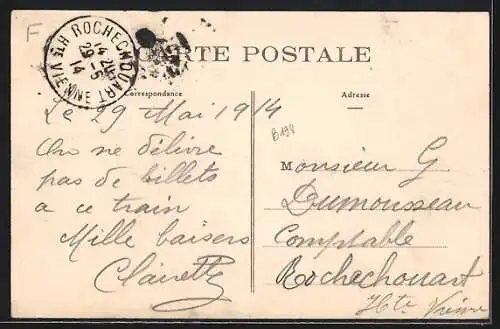 F
ROCHECHOUART
HTE VIENNE
29 -5
14
CARTE POSTALE
Correspondance
Adresse
Le 29 Mai 1914
On ne délivre
pas de billets
a ce train
Mille baisers
Clairette
B198
Monsieur G
Dumousseau
Comptable
Rochechouart
Hte Vienne